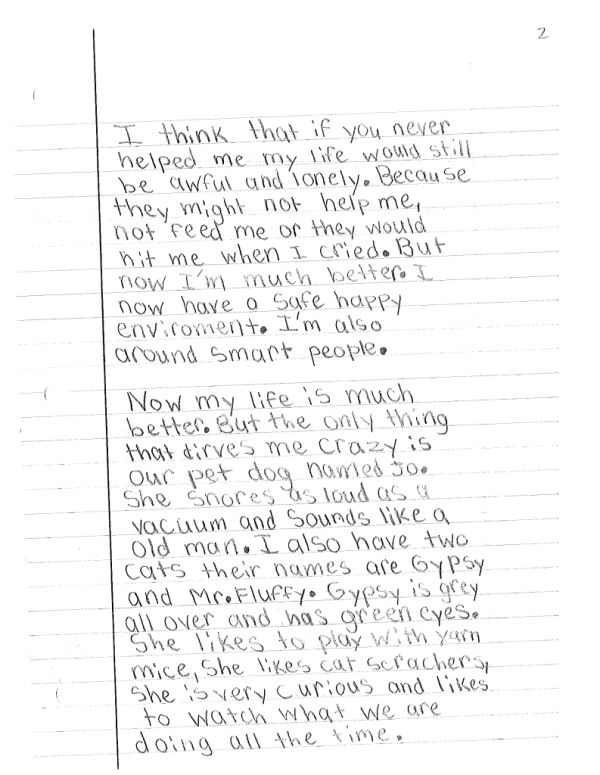 2
I think that if you never
helped me my life would still
be awful and lonely. Because
they might not help me,
not feed me or they would
hit me when I cried. But
now I'm much better. I
now have a safe happy
enviroment. I'm also
around smart people.
Now my life is much
better. But the only thing
that dirves me crazy is
our pet dog named Jo.
She snores as loud as a
vacuum and sounds like a
old man. I also have two
cats their names are Gypsy
and Mr. Fluffy. Gypsy is grey
all over and has green eyes.
She likes to play with yarn
mice, She likes cat scrachers,
She is very curious and likes
to watch what we are
doing all the time.